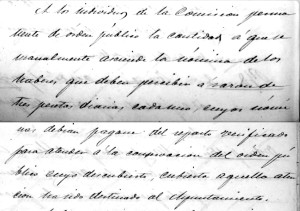 A los individuos de la Comision perma
nente de orden publico la cantidad a que se
manalmente asciende la nómina de los
haberes que deben percibir a razon de
tres pesetas diarias cada uno, cuyas nomi
nas debian pagarse del reparto verificado
para atender a la conservacion del orden pú
blico cuyo descubierto, cubierta aquella aten
cion ha sido destinado al Ayuntamiento.